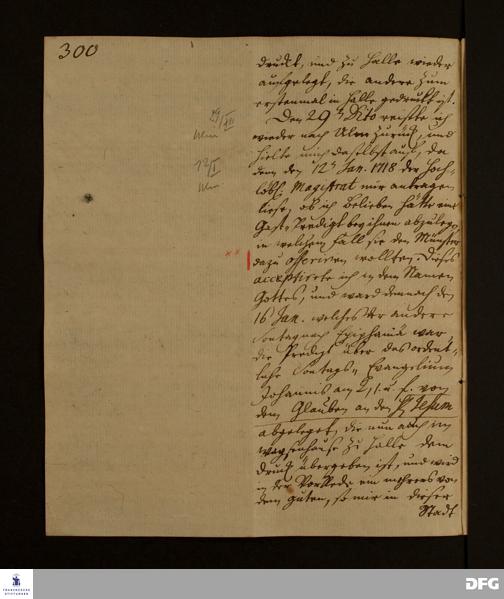 300
druckt, und zu Halle wieder
aufgelegt, die andere zum
erstenmal in Halle gedruckt ist.
Den 29 reisete ich
wieder nach Ulm zurück, und
hielte mich daselbst auf, da
denn den 12 Jan. 1718 der Hoch-
löbl. Magistrat mir antragen
liese, ob ich belieben hätte eine
Gast-Predigt bey ihnen abzulegen,
in welchem Fall sie den Münster
dazu offeriren wollten. Dieses
acceptirte ich in dem Namen
Gottes, und ward demnach den
16 Jan. welches der andere
Sontag nach Epiphaniä war
die Predigt über das ordent-
liche Sontags-Evangelium
Johannis am 2, 1. u. f. von
dem Glauben an den Jesum
abgeleget, die nun auch im
Waysenhause zu Halle dem
Druck übergeben ist, und wird
in der Vorrede ein mehrers von
dem guten, so mir in dieser
Stadt
29/XII
Ulm
12/I
Ulm
FRANCKESCHE
STIFTUNGEN
DFG